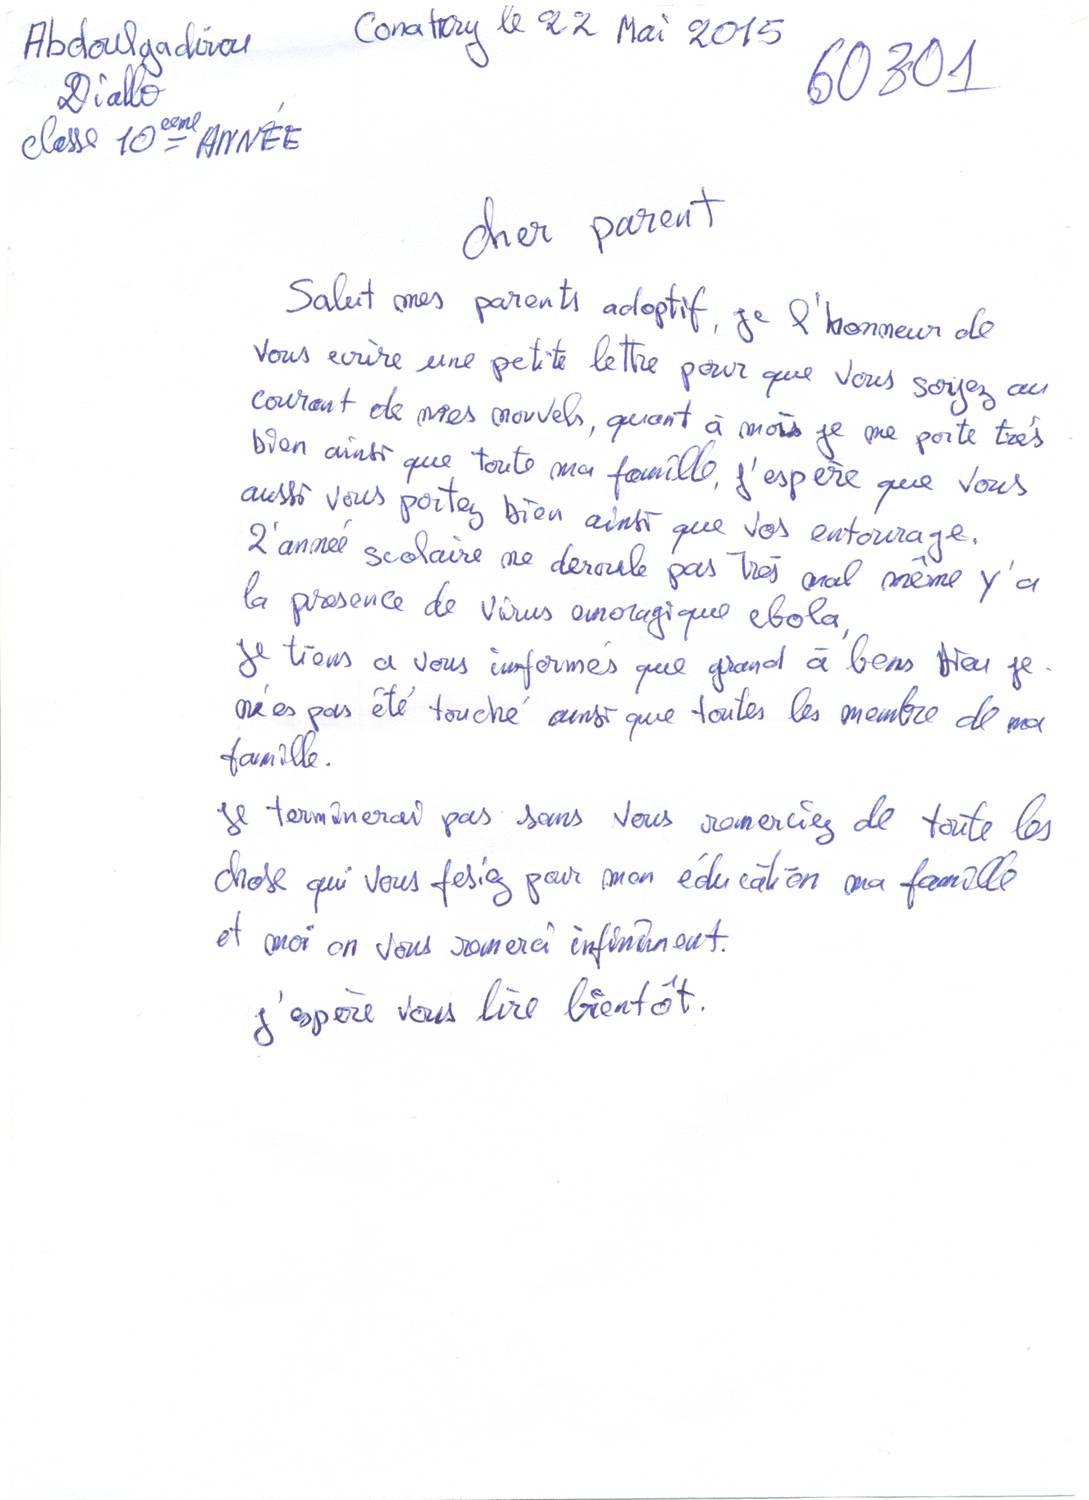 Abdoulgadirou
Conakry le 22 Mai 2015
60301
Diallo
classe 10eme ANNÉE
cher parent
Salut mes parents adoptif, je l'honneur de
vous ecrire une petite lettre pour que vous soyez au
courant de mes nouvels, quant à mois je me porte trés
bien ainsi que toute ma famille, j'espère que vous
aussi vous portez bien ainsi que vos entourage.
L'anneé scolaire ne deroule pas trés mal même y'a
la presence de virus emoragique ebola,
je tiens a vous informés que grand à bens Dieu je
n'es pas été touché ainsi que toutes les membre de ma
famille.
je terminerai pas sans vous remerciez de toute les
chose qui vous fesiez pour mon éducation ma famille
et moi on vous remerci infiniment.
j'espère vous lire bientôt.